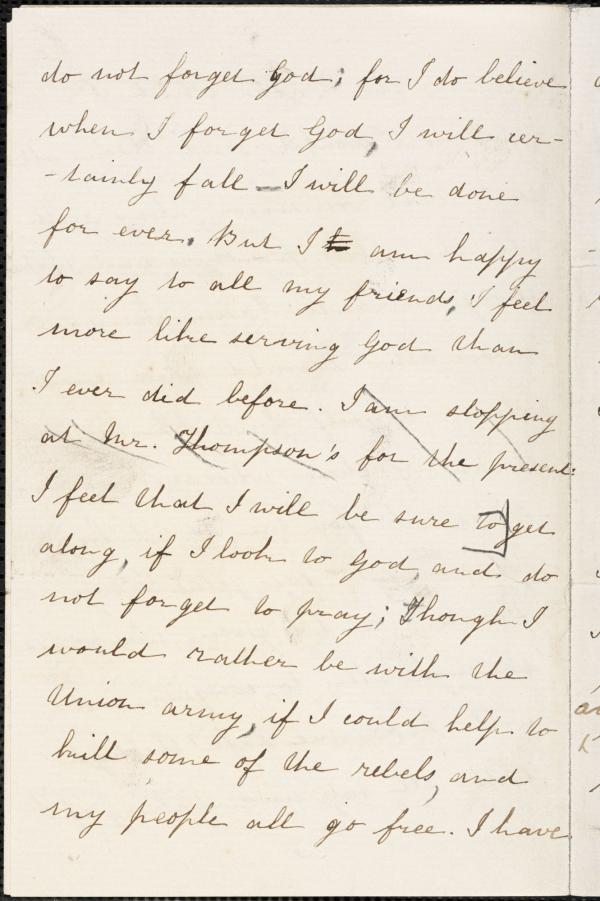 do not forget God; for I do believe
when I forget God, I will cer-
-tainly fall - I will be done
for ever. But I am happy
to say to all my friends, I feel
more like serving God than
I ever did before. I am stopping
at Mr. Thompson's for the present.
I feel that I will be sure to get
along, if I look to God, and do
not forget to pray; Though I
would rather be with the
Union army, if I could help to
kill some of the rebels, and
my people all go free. I have